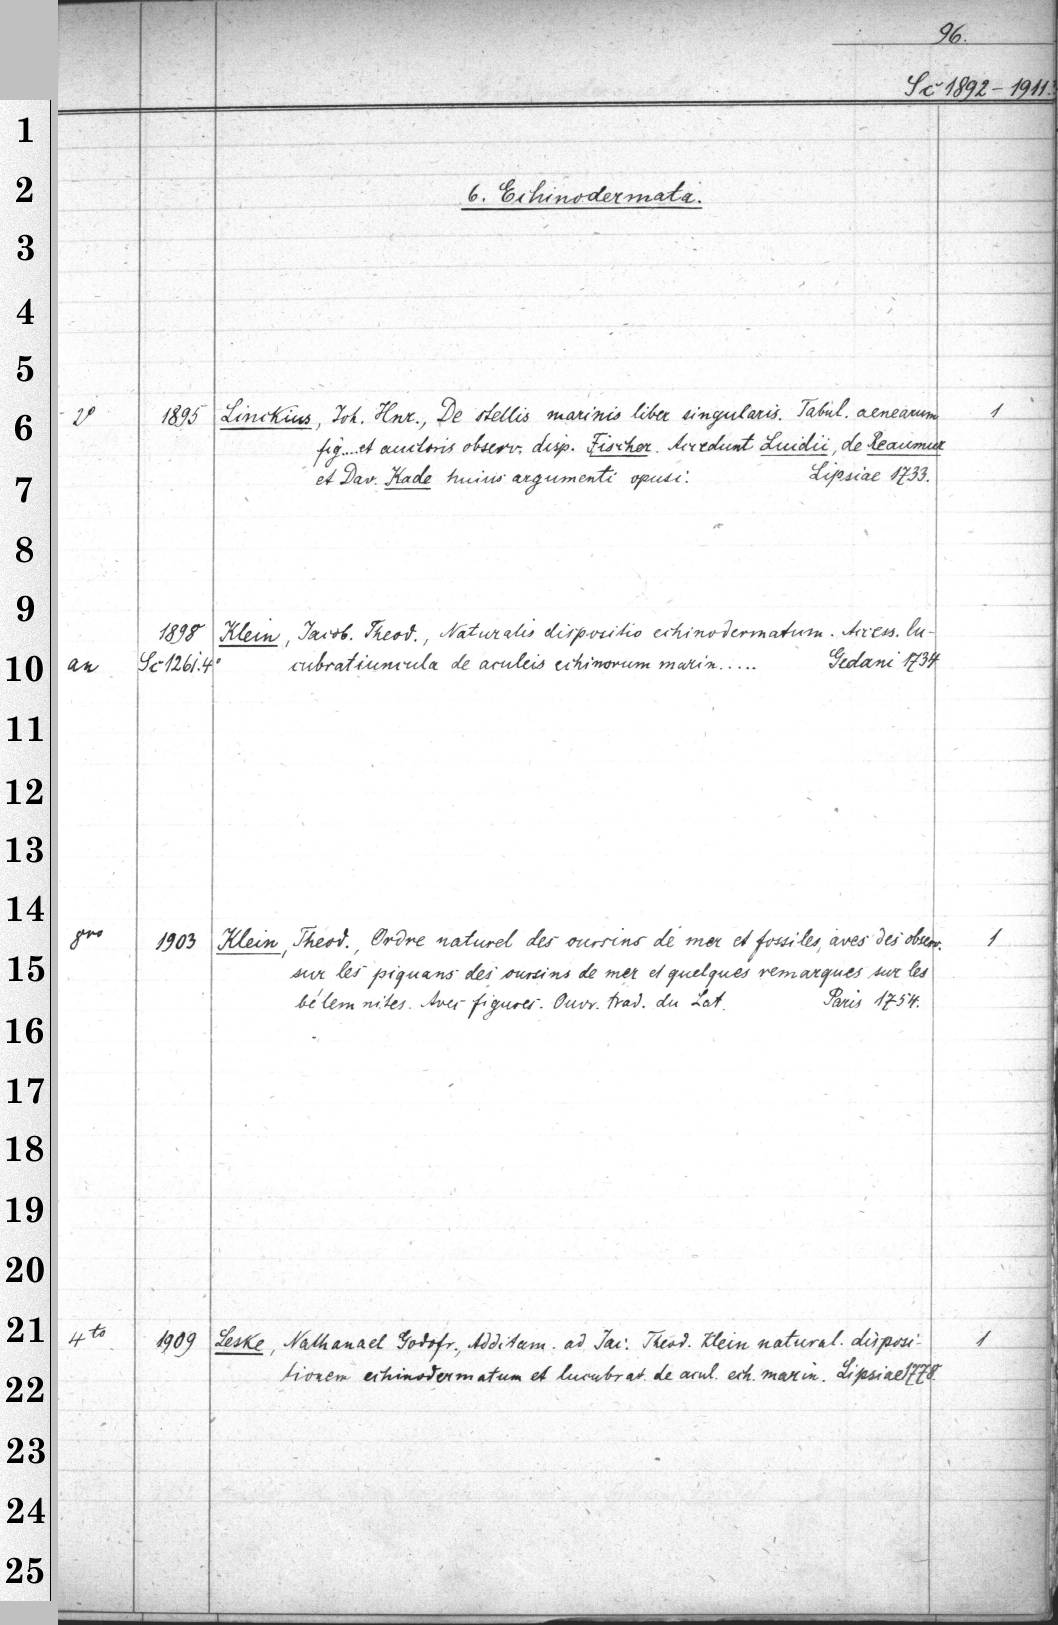 96.
Sc 1892 – 1911
6. Echinodermata.
2° 1895 Linckius, Joh. Hnr., De stellis marinis liber singularis. Tabul. aenearum 1
fig.... et auctoris observ. disp. Fischer. Accedunt Luidii, de Reaumur
et Dav. Kade huius argumenti opusc. Lipsiae 1733.
1898 Klein, Jacob. Theod., Naturalis dispositio echinodermatum. Access. lu-
an Sc 1261.4° cubratiuncula de aculeis echinorum marin..... Gedani 1734
8vo 1903 Klein, Theod., Ordre naturel des oursins de mer et fossiles, avec des observ. 1
sur les piquans des oursins de mer et quelques remarques sur les
bélemnites. Avec figures. Ouvr. trad. du Lat. Paris 1754.
4to 1909 Leske, Nathanael Godofr., Additam. ad Jac. Theod. Klein natural. disposi- 1
tionem echinodermatum et lucubrat. de acul. ech. marin. Lipsiae 1778.
1
2
3
4
5
6
7
8
9
10
11
12
13
14
15
16
17
18
19
20
21
22
23
24
25